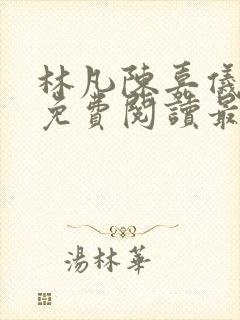 林凡陳嘉儀
免費閱讀最
湯林華